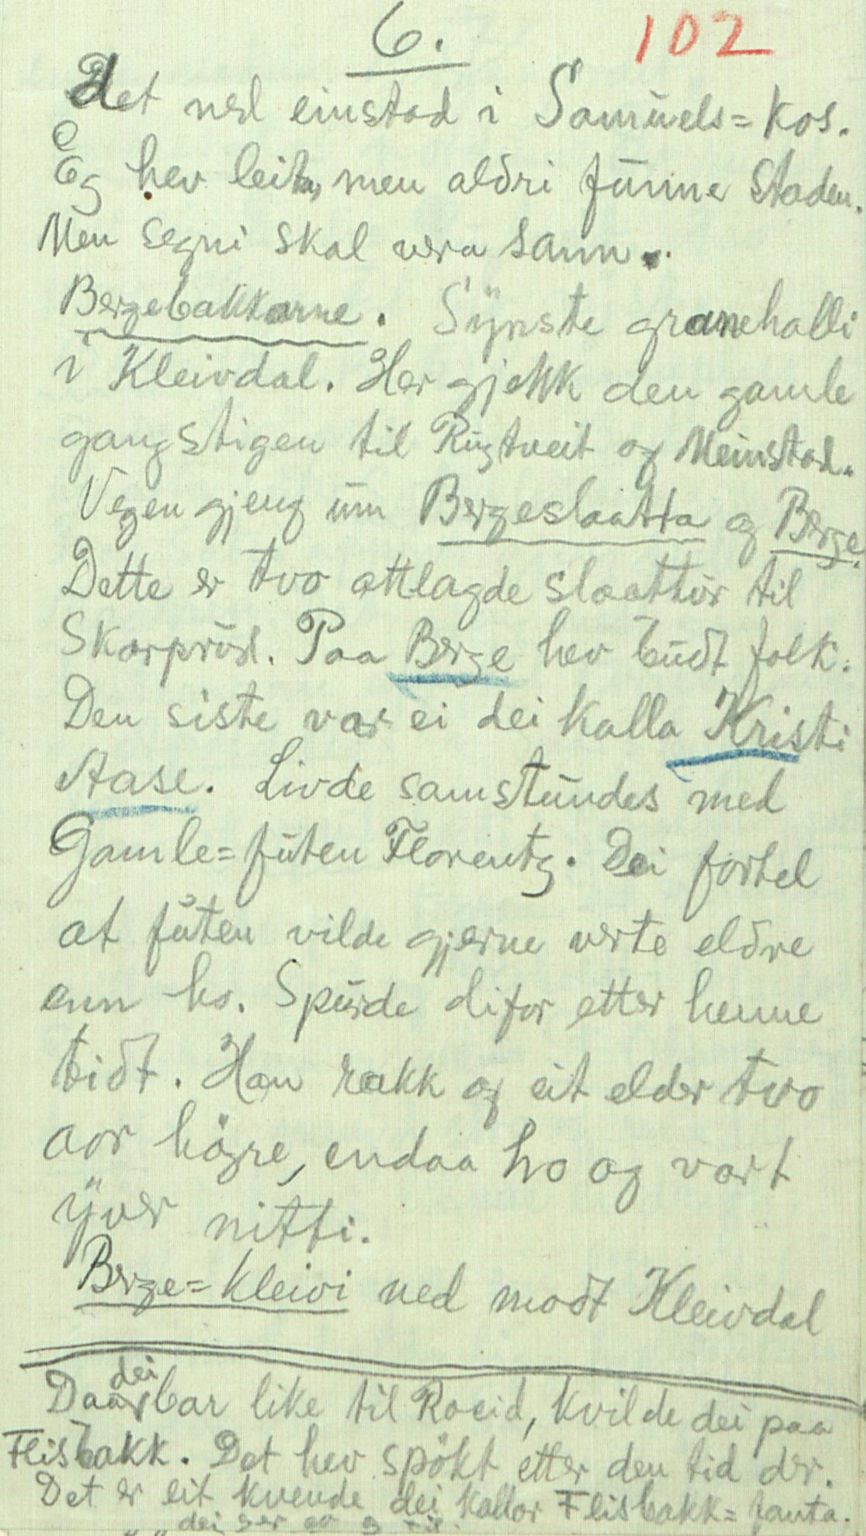 6. 102
Det ned einstad i Samuels=kos.
Eg hev leita, men aldri funne staden.
Men segni skal vera sann.
Bergebakkarne. Synste granehalli
i Kleivdal. Her gjekk den gamle
gangstigen til Rugtveit og Meinstad.
Vegen gjeng um Bergeslaatta og Berge.
Dette er tvo attlagde slaattur til
Skarprud. Paa Berge hev budt folk.
Den siste var ei dei kalla Kristi
Aase. Livde samstundes med
Gamle=futen Florentz. Dei fortel
at futen vilde gjerne verte eldre
enn ho. Spurde difor etter henne
tidt. Han rakk og eit elder tvo
aar högre, endaa ho og vart
yver nitti.
Berge=kleivi ned modt Kleivdal
Daa dei bar like til Roeid, kvilde dei paa
Flisbakk. Det hev spökt etter den tid der.
Det er eit kvende dei kallar Flisbakk=fanta.
dei ser